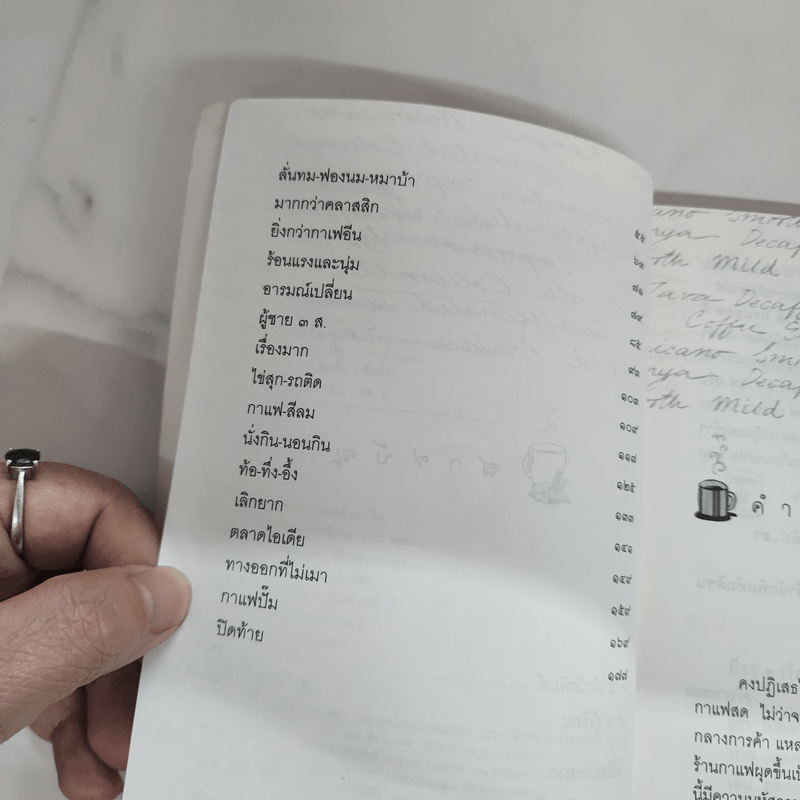 ลั่นทม-ฟองนม-หมาบ้า ๕๕
มากกว่าคลาสสิก ๖๓
ยิ่งกว่ากาเฟอีน ๗๑
ร้อนแรงและนุ่ม ๗๙
อารมณ์เปลี่ยน ๘๕
ผู้ชาย ๓ ส. ๙๓
เรื่องมาก ๑๐๓
ไข่สุก-รถติด ๑๐๙
กาแฟ-สีลม ๑๑๗
นั่งกิน-นอนกิน ๑๒๕
ท้อ-ทึ่ง-อึ้ง ๑๓๓
เลิกยาก ๑๔๑
ตลาดไอเดีย ๑๔๙
ทางออกที่ไม่เมา ๑๕๙
กาแฟปั๊ม ๑๖๙
ปิดท้าย ๑๗๗
Decaf
Mild
Java Decaf
Coffee
Decaf
Mild
คำ
คงปฏิเสธ
กาแฟสด ไม่ว่าจ
กลางการค้า แหล
ร้านกาแฟผุดขึ้นเป็